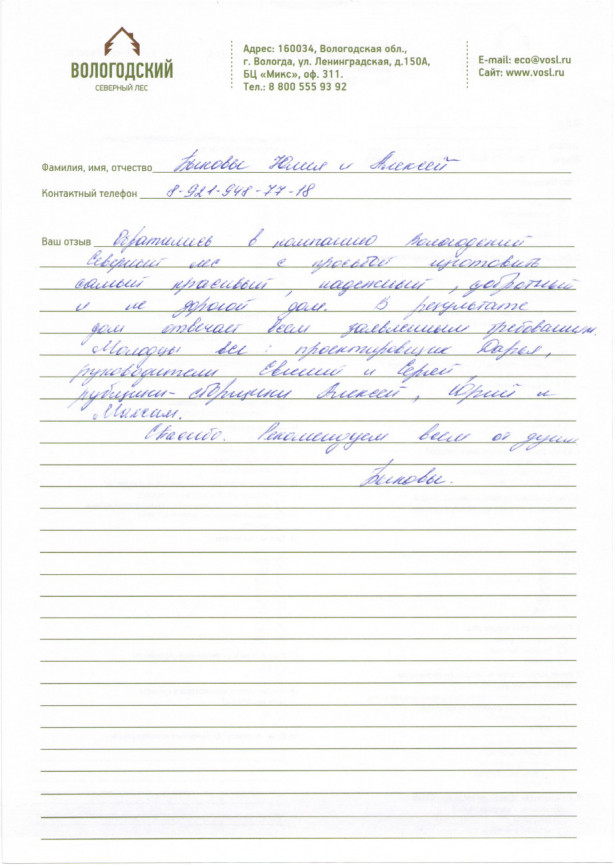 ВОЛОГОДСКИЙ
СЕВЕРНЫЙ ЛЕС
Адрес: 160034, Вологодская обл.,
г. Вологда, ул. Ленинградская, д.150А,
БЦ «Микс», оф. 311.
Тел.: 8 800 555 93 92
E-mail: eco@vosl.ru
Сайт: www.vosl.ru
Фамилия, имя, отчество Быковы Юлия и Алексей
Контактный телефон 8-921-948-77-18
Ваш отзыв Обратились в компанию Вологодский
Северный лес с просьбой изготовить
самый красивый, надежный, добротный
и не дорогой дом. В результате
дом отвечает всем заявленным требованиям.
Молодцы все: проектировщик Дарья,
руководители Евгений и Сергей,
рубщики-сборщики Алексей, Юрий и
Максим.
Спасибо. Рекомендуем всем от души
Быковы.